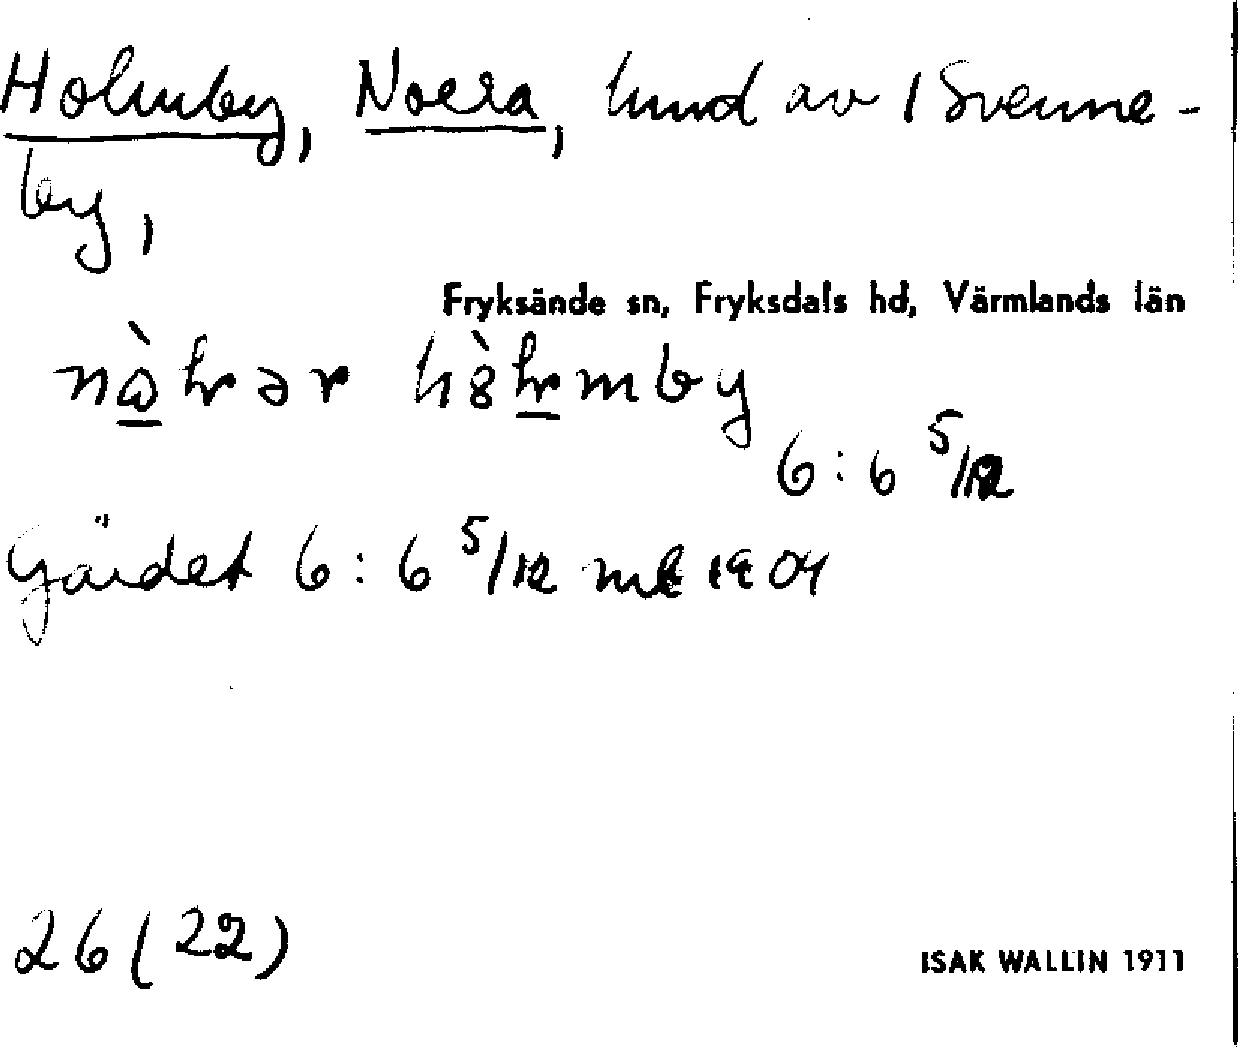 Holmby, Norra, hmd av 1 Svenne-
by,
Fryksände sn, Fryksdals hd, Värmlands län
6:6 5/12
Gärdet 6:6 5/12 mt 1904
26 (22)
ISAK WALLIN 1911